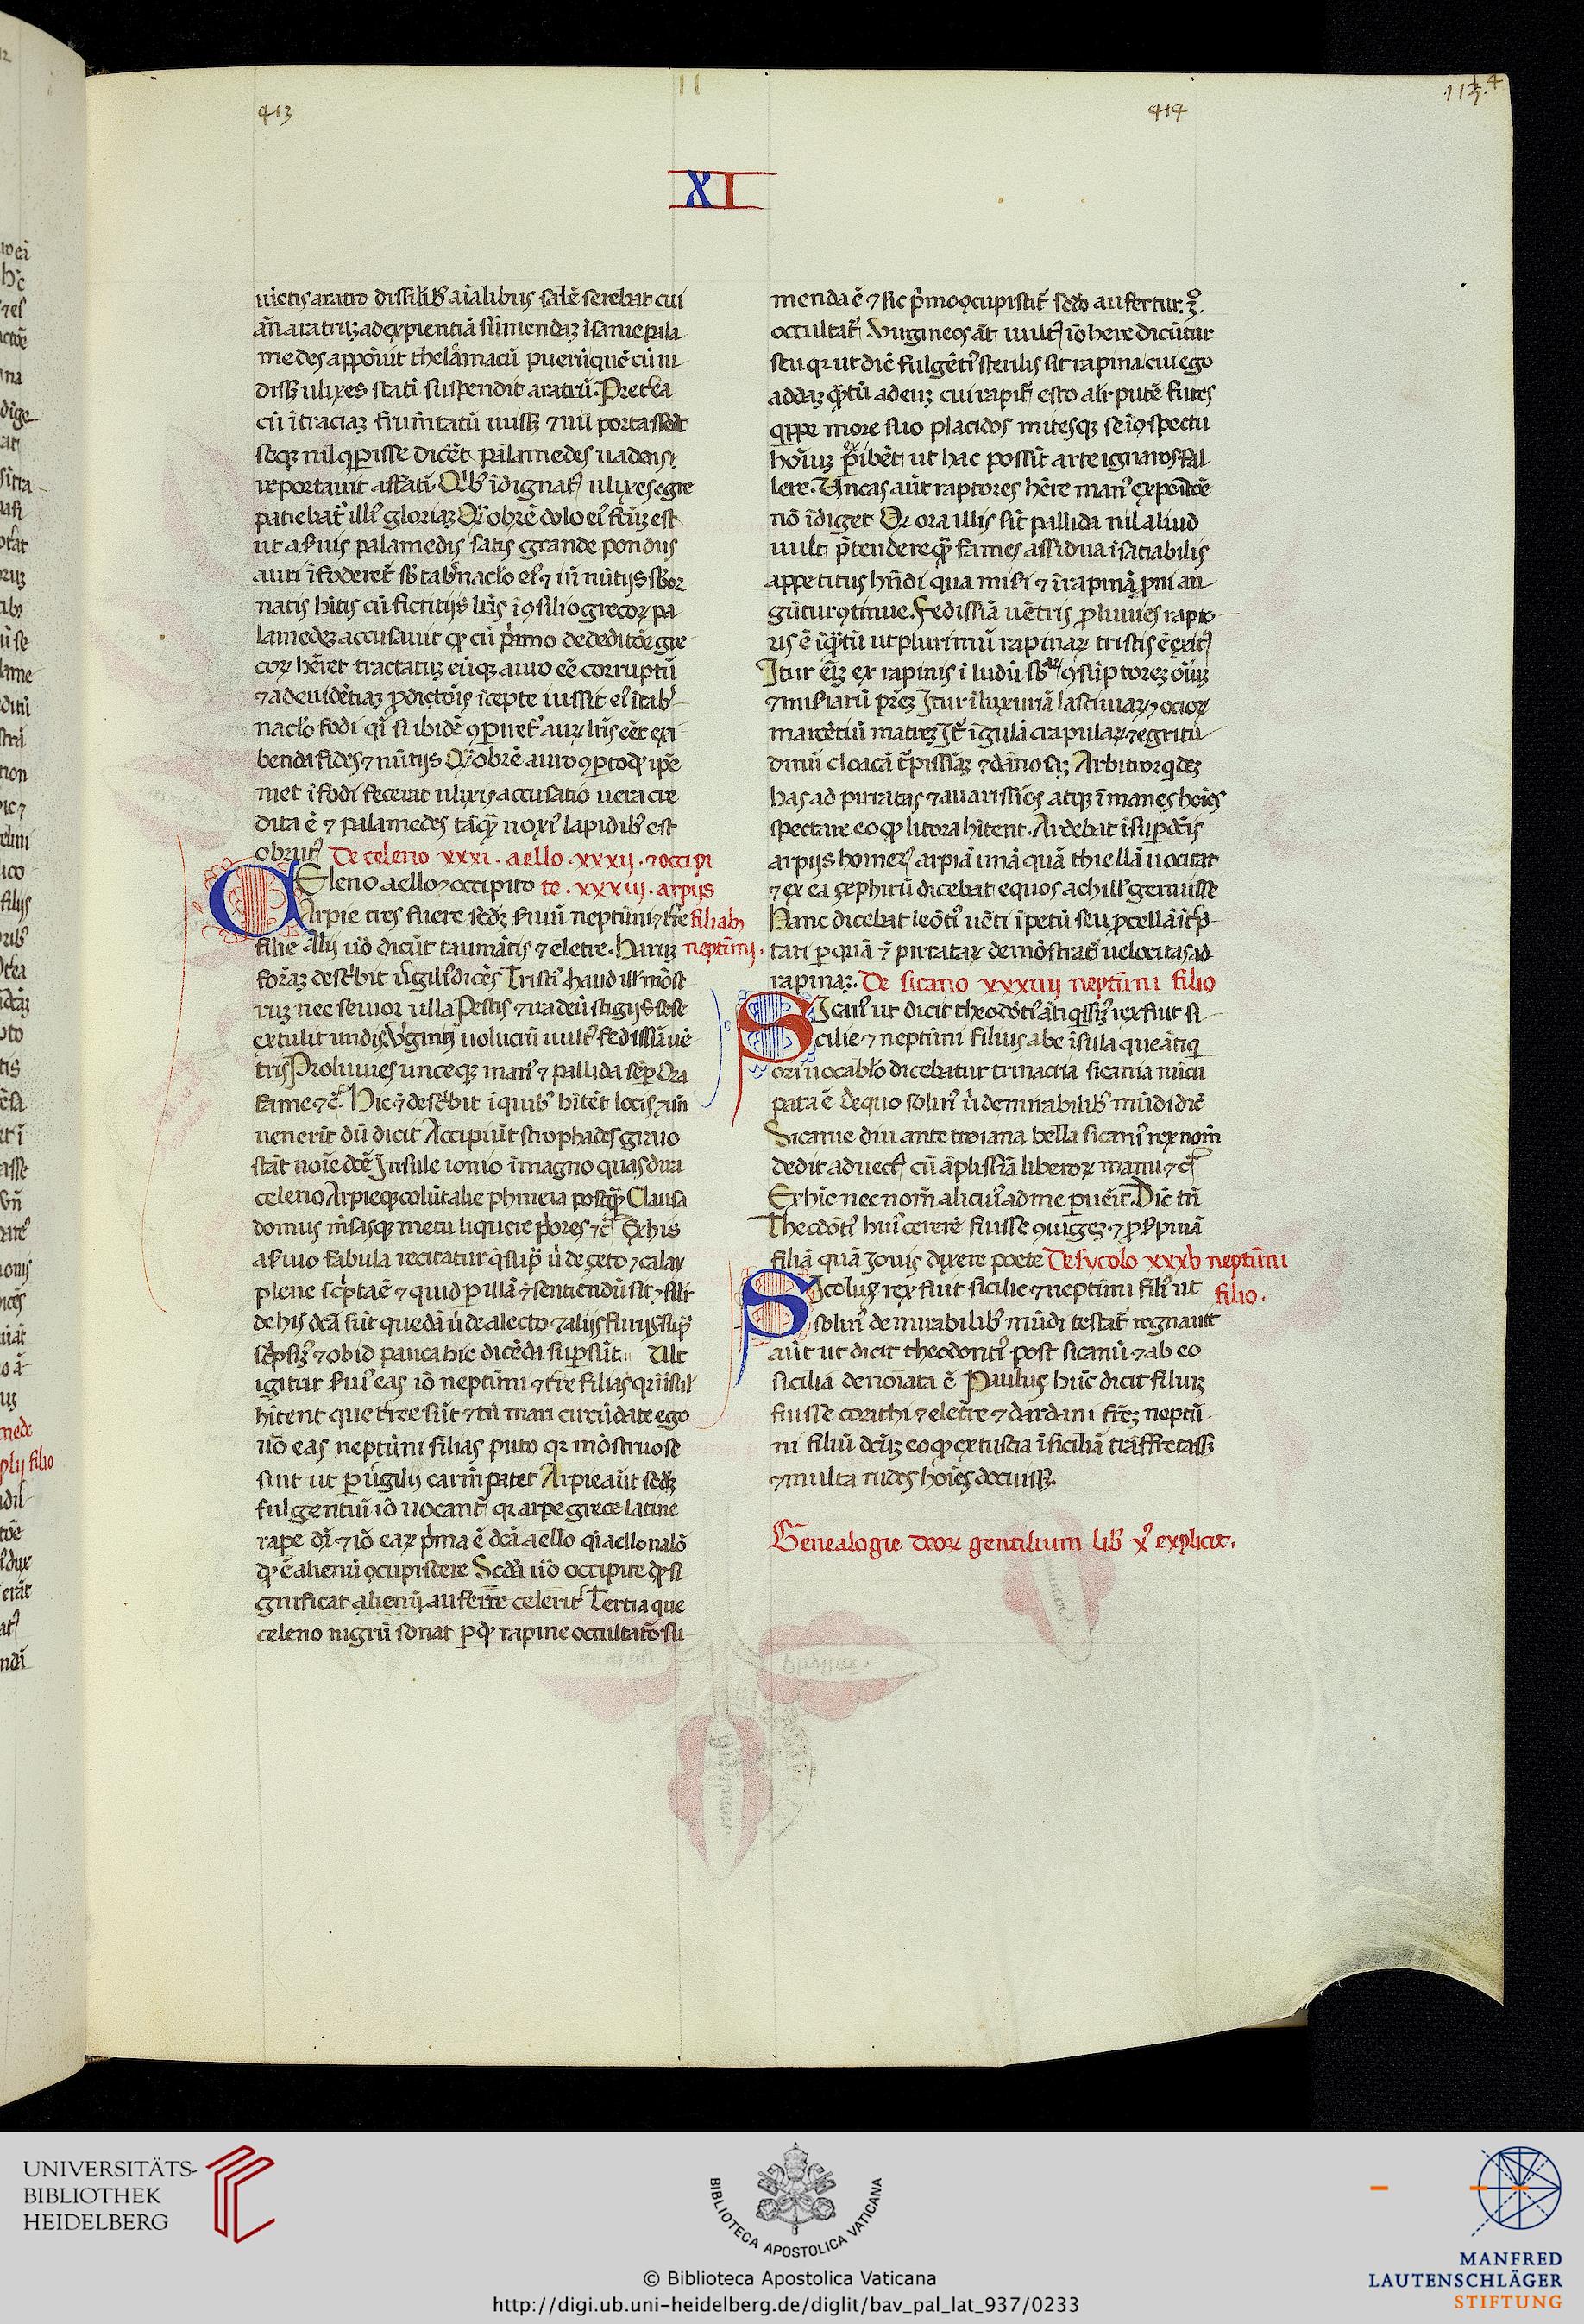 413
414
XI
uictis aratro dissilib; aĩalibus salẽ serebat cui
añ aratruz ad expientiã sũmendaz ĩsanie pala
medes apposuit thelamacũ puerũ quẽ cũ ui
diss; ulixes statĩ suspendit aratrũ. Pretea
cũ ĩ traciaz frumtatũ iuiss; ⁊ nil portasset
seq; nil q̃pisse dicẽt palamedes uadens
reportauit affatĩ. Qib; ĩdignat᷒ ulixes egre
patiebat᷒ illi᷒ gloriaz. Q̃obrẽ dolo ei᷒ fc̃m est
ut a suis palamedis satis grande pondus
auri ĩfoderet᷒ sb tabnaclo ei᷒ ⁊ ĩn nũtijs sbor
natis hitis cũ fictitijs lris ĩ ꝯsilio grecoꝝ pa
lamedez accusauit qꝫ cũ pamo de deditõe gre
coꝝ hẽret tractatuz eũq; auro eẽ corruptũ
⁊ ad euidẽtiaz ꝓditõis ĩcepte iussit ei᷒ ĩ tab
naclo fodi qi si ibidẽ ꝯpiret᷒ auꝝ lris eẽt exi
benda fides ⁊ nũtijs Q̃obrẽ auro ꝯpto qd ipe
met ĩfodi fecerat ulixis accusatio uera cre
dita ẽ ⁊ palamedes tãq̃ noxi᷒ lapidib; est
obrut᷒ De celeno xxxi. aello. xxxij. ⁊ occipi
Celeno aello ⁊ occipito te. xxxiij. arpijs
Arpie tres fuere sedz fuiũ neptũni ⁊ tre filiab;
filie Alij uõ dicũt taumãtis ⁊ eletre. haruz neptũni.
formaz describit uirgili᷒ dicẽs Tristi᷒ haud ill᷒ mõst
rũz nec seuior ulla Pestis ⁊ ira deũ stigijs sese
extulit undis Uirginei uolucrũ uult᷒ fedissĩa uẽ
tris Proluuies unceq; man᷒ ⁊ pallida semp Ora
fame ⁊c̃. Hic ⁊ describit ĩ quib; hitẽt locis ⁊ un
uenerĩt dũ dicit Accipiũt strophades graio
stãt noĩe dcẽ Insule ionio ĩ magno quas dira
celeno Arpieq; colũt alie phineia postq̃ Clausa
domus msasq; metu liquere priores ⁊c̃ Ex his
a suo fabula recitatur q̃ sup̃ u᷒ de zeto ⁊ calay
plene scripta ẽ ⁊ quid p illã ⁊ sentiendũ sit ⁊ silr
de his dcã sũt quedã u᷒ de alecto ⁊ alijs furijs sup᷒
scripsiz ⁊ ob id pauca hic dicẽda supsũt. Ult
igitur fui᷒ eas iõ neptũni ⁊ tre filias qr ĩ ĩsul᷒
hitent que tree sũt ⁊ tñ mari circũdate ego
uõ eas neptũni filias puto qr mõstruose
sint ut p uirgilij carm patet Arpie aũt sedz
fulgentiũ iõ uocant᷒ qr arpe grece latine
rape dr᷒ ⁊ iõ eaꝝ prima ẽ dcã aello qi aello nalõ
qd ẽ alienũ ꝯcupiscere Scdã uõ occipite qd si
gnificat alienũ auferre celerit᷒ Tertia que
celeno nigrũ sonat p qd rapine occultatio su
menda ẽ ⁊ sic primo ꝯcupiscit᷒ scdo aufertur. 3º.
occultat᷒ Uirgineos ãt uult᷒ iõ here dicũtur
seu qr ut dic̃ fulgẽti᷒ sterilis sit rapina. cui ego
addaz q̃tũ ad euz cui rapit᷒ esto alr putẽ fures
q̃ppe more suo placidos mitesq; se ĩ ꝯspectu
hoĩuz pribẽt ut hac possĩt arte ignaros fal
lere. Uncas aũt raptores hẽre man᷒ expõitõe
nõ ĩdiget Qr ora illis sĩt pallida nil aliud
uult ptendere q̃ fames assidua ĩsatiabilis
appetitus hñdi qua miseri ⁊ ĩ rapinã proni an
gũtur ꝯtinue. Fedissĩã uẽtris ꝓluuies rapto
ris ẽ ĩq̃tũ ut plurimũ rapinaꝝ tristis ẽ exit᷒
Itur eñz ex rapinis ĩ ludũ sbstãtiaꝝ ꝯsũptorez oĩuz
⁊ miseriaꝝ pr̃ez Itur ĩ luxuriã lasciuiaꝝ ⁊ ocioꝝ
marcẽtiũ matrez It᷒ ĩ gulã crapulaꝝ ⁊ egritu
dinũ cloacã t᷒pissĩaz ⁊ dãnosaz Arbitror qdez
has ad pirratas ⁊ auarissĩos atq; ĩmanes hoĩes
spectare eo qꝫ litora hitent. Ardebat ĩ sup dc̃is
arpijs homer᷒ arpiã unã quã thiellã uocitat
⁊ ex ea zephirũ dicebat equos achill᷒ genuisse
Hanc dicebat leõti᷒ uẽti ĩpetũ seu ꝓcellã ĩtp
tari p quã ⁊ pirrataꝝ demõstrat᷒ uelocitas ad
rapinaz. De sicano xxxiiij neptũni filio
Sicani᷒ ut dicit theodõti᷒ ãtiqissĩz rex fuit si
cilie ⁊ neptũni filius a be ĩsula que ãtiq
ori uocablo dicebatur trinacria sicania nũcu
pata ẽ de quo solin᷒ u᷒ de mirabilib; mũdi dic̃
Sicanie diu ante troiana bella sicani᷒ rex nom̃
dedit aduect᷒ cũ ãplissĩã liberoꝝ manu ⁊c̃
Ex hĩc nec nom̃ alicui᷒ ad me puẽit. Dic̃ tñ
Theodõti᷒ hui᷒ cererẽ fuisse ꝯiugez ⁊ proserpinã
filiã quã Jouis dixere poete De sycolo xxxv neptũni
Sicolus rex fuit sicilie ⁊ neptũni fili᷒ ut filio.
solin᷒ de mirabilib; mũdi testat᷒ regnauit
aũt ut dicit theodonti᷒ post sicanũ ⁊ ab eo
sicilia denoĩata ẽ Paulus hũc dicit filiuz
fuisse corithi ⁊ eletre ⁊ dardani fr̃ez neptũ
ni filiũ dc̃uz eo qꝫ ex tuscia ĩ siciliã trãsfretass;
⁊ multa rudes hoĩes docuiss;.
Genealogie deoꝝ gentilium lib᷒ x᷒ explicit.
UNIVERSITÄTS-
BIBLIOTHEK
HEIDELBERG
BIBLIOTECA APOSTOLICA VATICANA
© Biblioteca Apostolica Vaticana
http://digi.ub.uni-heidelberg.de/diglit/bav_pal_lat_937/0233
MANFRED
LAUTENSCHLÄGER
STIFTUNG